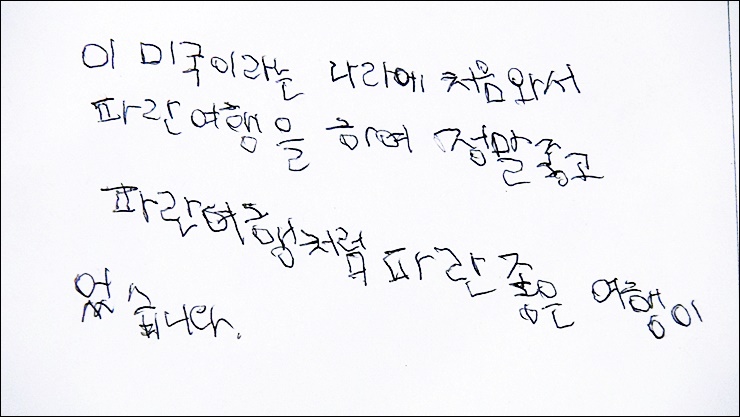 이 미국이라는 나라에 처음와서
파란여행을 하며 정말좋고
파란여행처럼 파란 좋은 여행이
없습니다.